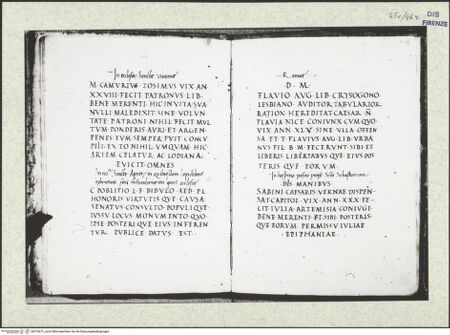 45v/46r
DIS
FIRENZE
In ecclesia
M. CAMVRIVS ZOSIMVS VIX AN
XXVIII FECIT PATRONVS LIB
BENE MERENTI HIC IN VITA SVA
NVLLI MALEDIXIT SINE VOLVN
TATE PATRONI NIHIL FECIT MVL
TVM PONDERIS AVRI ET ARGEN
PENES EVM SEMPER FVIT CONCV
PIIT EX EO NIHIL VMQVAM HIC
ARTEM CELATVR
EVICIT OMNES
C POBLICIO L F BIBVLO AED PL
HONORIS VIRTVTIS QVE CAVSA
SENATVS CONSVLTO POPVLIQVE
IVSSV LOCVS MONVMENTO QVO
IPSE POSTERI QVE EIVS INFEREN
TVR PVBLICE DATVS EST
D M
FLAVIO AVG LIB CRYSOGONO
LESBIANO AVDITOR TABVLARIOR
RATION HEREDITAT CAESAR N
FLAVIA NICE CONIVNX CVM QVO
VIX ANN XLV SINE VLLA OFFEN
SA ET T FLAVIVS AVG LIB VRBA
NVS FIL B M FECERVNT SIBI ET
LIBERIS LIBERTABVS QVE EIVS POS
TERIS QVE EORVM
DIS MANIBVS
SABINI CAESARIS VERNAE DISPEN
SAT CAPITOL VIX ANN XXX FE
CIT IVLIA ARTEMISIA CONIVGE
BENE MERENTI ET SIBI POSTERIS
QVE EORVM PERMISSV IVLIAE
EPIPHANIAE